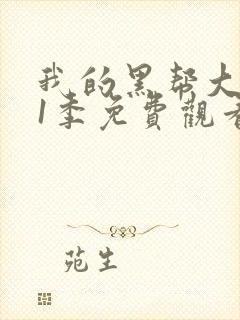 我的黑帮大
1季免費觀看
苑生